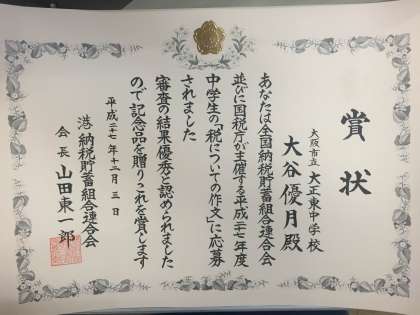 賞状
大阪市立 大正東中学校
大谷優月殿
あなたは全国納税貯蓄組合連合会
並びに国税庁が主催する平成二十七年度
中学生の「税についての作文」に応募
されました
審査の結果優秀と認められました
ので記念品を贈りこれを賞します
平成二十七年十二月三日
港納税貯蓄組合連合会
会長 山田東一郎